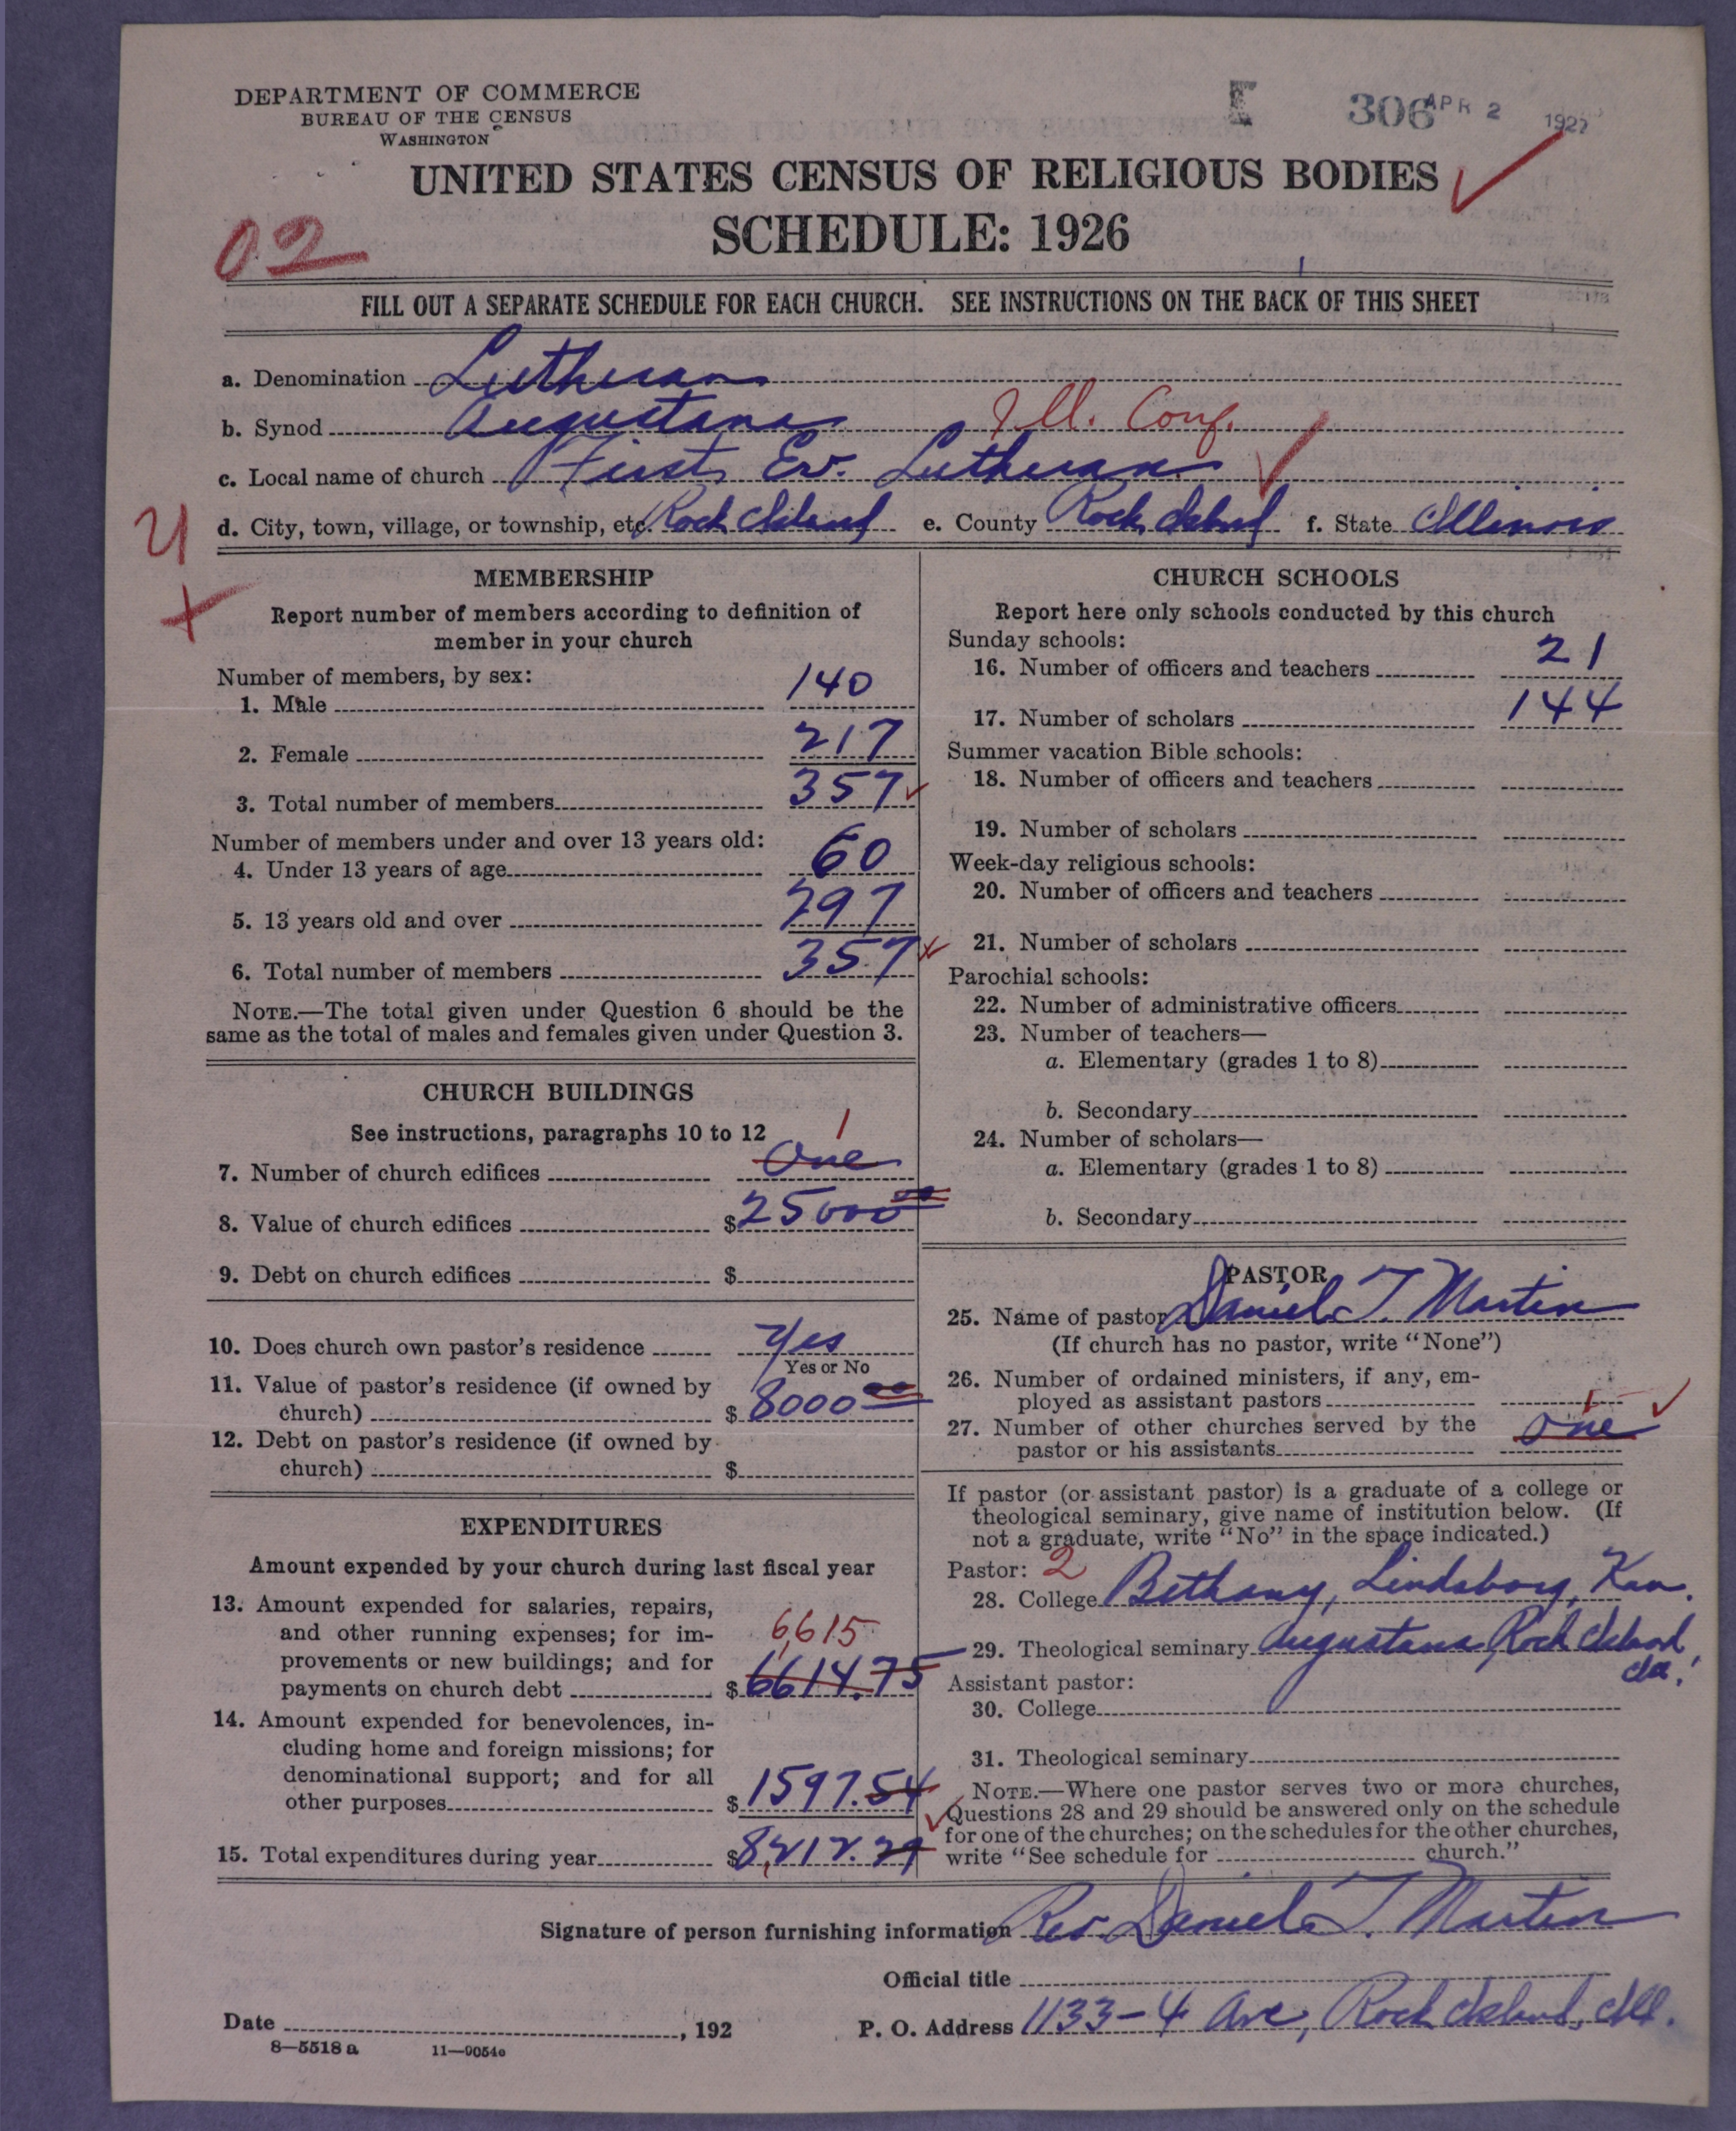 DEPARTMENT OF COMMERCE
BUREAU OF THE CENSUS
WASHINGTON
E 306 APR 2 1927
UNITED STATES CENSUS OF RELIGIOUS BODIES
SCHEDULE: 1926
02
FILL OUT A SEPARATE SCHEDULE FOR EACH CHURCH. SEE INSTRUCTIONS ON THE BACK OF THIS SHEET
a. Denomination Lutheran
b. Synod Augustana Ill. Conf.
c. Local name of church First Ev. Lutheran
d. City, town, village, or township, etc. Rock Island e. County Rock Island f. State Illinois
MEMBERSHIP
Report number of members according to definition of
member in your church
Number of members, by sex:
1. Male 140
2. Female 217
3. Total number of members 357
Number of members under and over 13 years old:
4. Under 13 years of age 60
5. 13 years old and over 297
6. Total number of members 357
NOTE.—The total given under Question 6 should be the
same as the total of males and females given under Question 3.
CHURCH BUILDINGS
See instructions, paragraphs 10 to 12
1
7. Number of church edifices One
8. Value of church edifices $25000 00
9. Debt on church edifices $
10. Does church own pastor's residence Yes
Yes or No
11. Value of pastor's residence (if owned by
church) $8000 00
12. Debt on pastor's residence (if owned by
church) $
EXPENDITURES
Amount expended by your church during last fiscal year
13. Amount expended for salaries, repairs,
and other running expenses; for im-
6615
provements or new buildings; and for
payments on church debt $6614.75
14. Amount expended for benevolences, in-
cluding home and foreign missions; for
denominational support; and for all
other purposes $1597.54
15. Total expenditures during year $8,212.29
CHURCH SCHOOLS
Report here only schools conducted by this church
Sunday schools:
16. Number of officers and teachers 21
17. Number of scholars 144
Summer vacation Bible schools:
18. Number of officers and teachers
19. Number of scholars
Week-day religious schools:
20. Number of officers and teachers
21. Number of scholars
Parochial schools:
22. Number of administrative officers
23. Number of teachers—
a. Elementary (grades 1 to 8)
b. Secondary
24. Number of scholars—
a. Elementary (grades 1 to 8)
b. Secondary
PASTOR
25. Name of pastor Daniel T. Martin
(If church has no pastor, write "None")
26. Number of ordained ministers, if any, em-
ployed as assistant pastors
1
27. Number of other churches served by the
pastor or his assistants one
If pastor (or assistant pastor) is a graduate of a college or
theological seminary, give name of institution below. (If
not a graduate, write "No" in the space indicated.)
Pastor: 2
28. College Bethany, Lindsborg, Kan.
29. Theological seminary Augustana, Rock Island,
Assistant pastor:
30. College
31. Theological seminary
NOTE.—Where one pastor serves two or more churches,
Questions 28 and 29 should be answered only on the schedule
for one of the churches; on the schedules for the other churches,
write "See schedule for church."
Signature of person furnishing information Rev. Daniel T. Martin
Official title
Date , 192 P. O. Address 1133-4 Ave, Rock Island, Ill.
8—5518 a 11—9054e